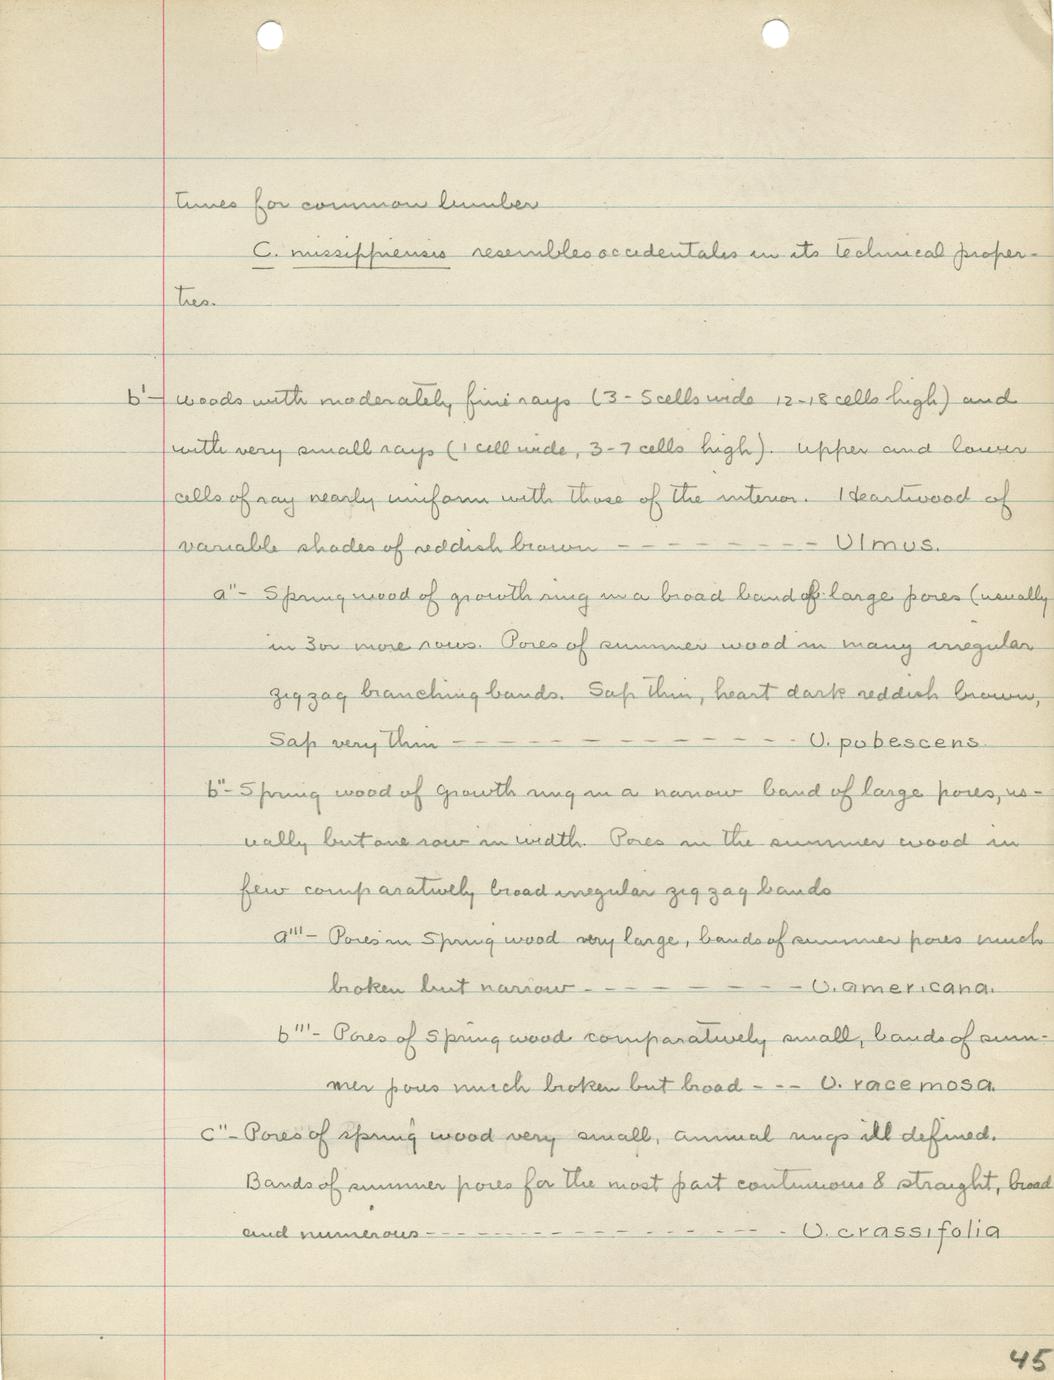 times for common lumber
C. missippiensis resembles occidentalis in its technical proper-
ties.
b'- woods with moderately fine rays (3-5 cells wide 12-18 cells high) and
with very small rays (1 cell wide, 3-7 cells high). Upper and lower
cells of ray nearly uniform with those of the interior. Heartwood of
variable shades of reddish brown - - - - - - - - - Ulmus.
a"- Spring wood of growth ring in a broad band of large pores (usually
in 3 or more rows. Pores of summer wood in many irregular
zigzag branching bands. Sap thin, heart dark reddish brown,
Sap very thin - - - - - - - - - - - - - - - U. pubescens.
b"- Spring wood of growth ring in a narrow band of large pores, us-
ually but one row in width. Pores in the summer wood in
few comparatively broad irregular zig zag bands
a'''- Pores in Spring wood very large, bands of summer pores much
broken but narrow - - - - - - - - - U. americana.
b'''- Pores of Spring wood comparatively small, bands of sum-
mer pores much broken but broad - - - U. racemosa.
c"- Pores of spring wood very small, annual rings ill defined.
Bands of summer pores for the most part continuous & straight, broad
and numerous - - - - - - - - - - - - - - - - U. crassifolia
45